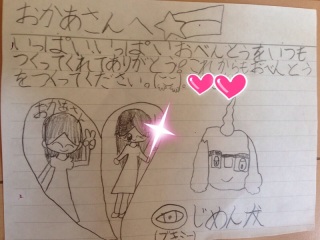 おかあさんへ
いっぱいいっぱいおべんとうをいつも
つくってくれてありがとう。これからもおべんとう
をつくってください。
おかあさん
じめん犬